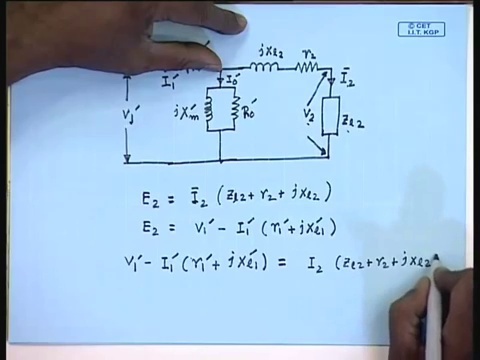 © CET
I.I.T. KGP
jxl2 r2
I1′ I0′ Ī2
V1′ jXm′ R0′ V2 Zl2
E2 = Ī2 (Zl2 + r2 + jxl2)
E2 = V1′ - I1′ (r1′ + jxl1′)
V1′ - I1′ (r1′ + jxl1′) = I2 (Zl2 + r2 + jxl2